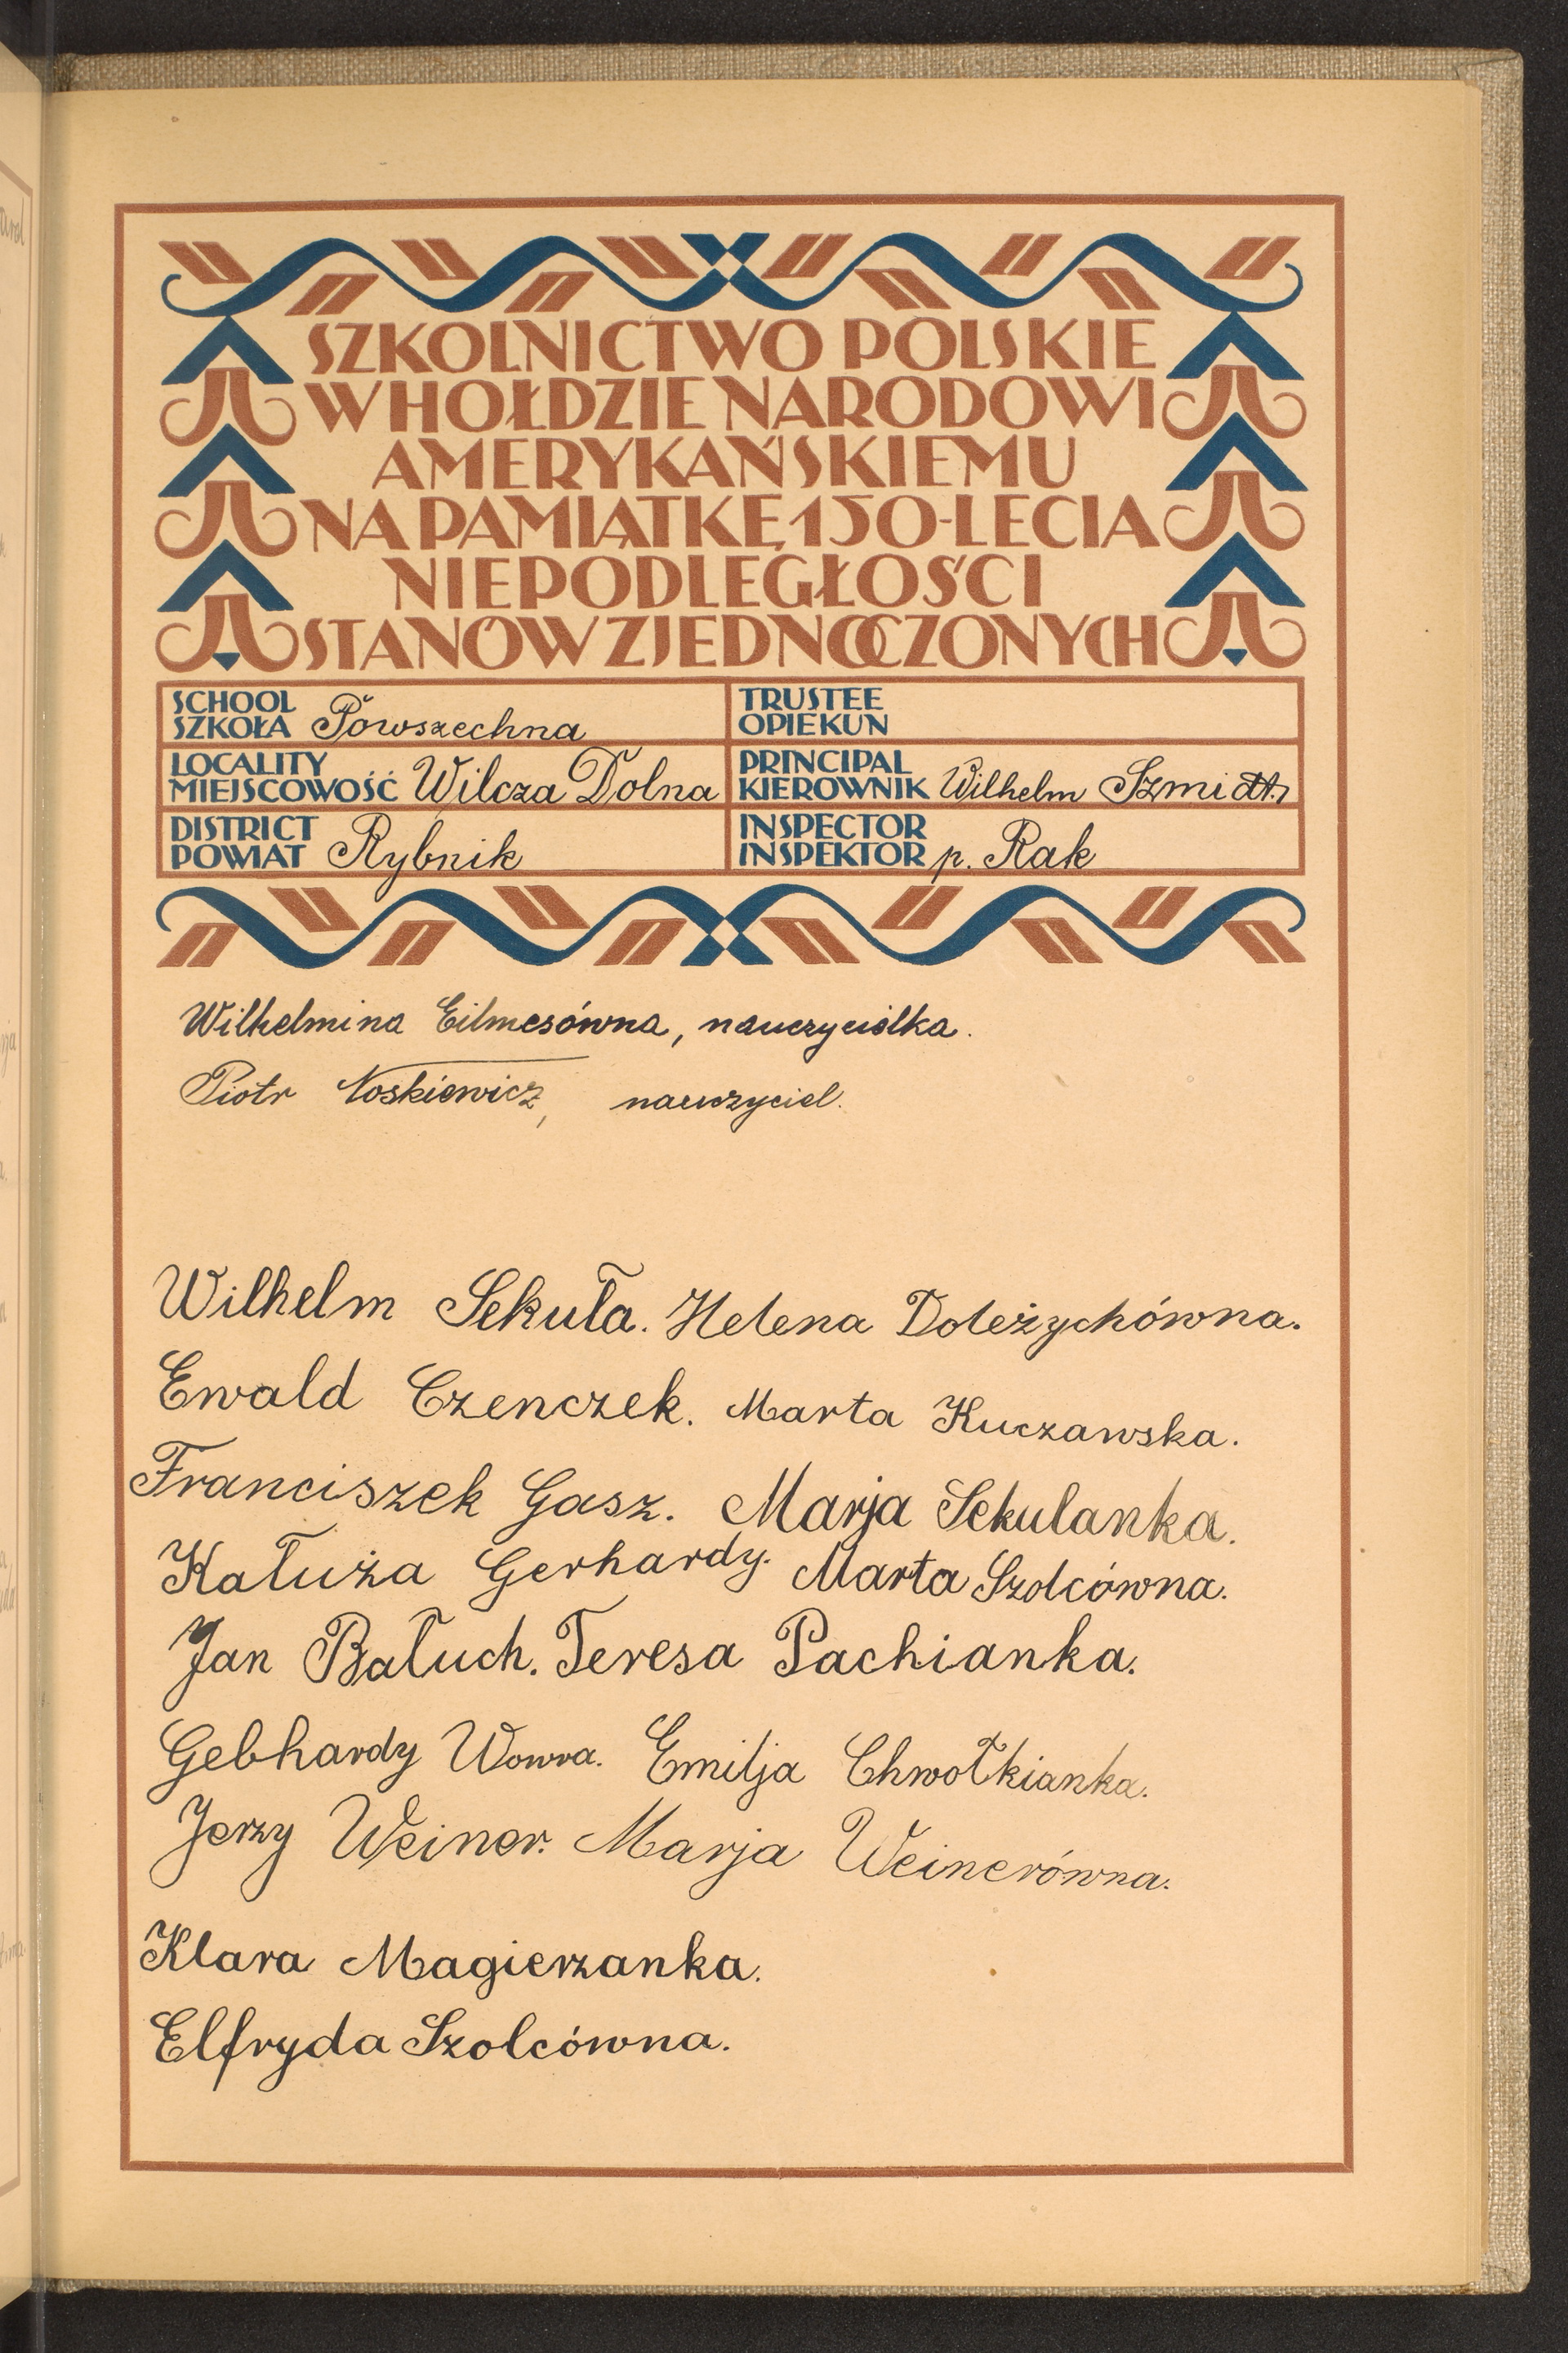 SZKOLNICTWO POLSKIE
W HOŁDZIE NARODOWI
AMERYKAŃSKIEMU
NA PAMIĄTKĘ 150-LECIA
NIEPODLEGŁOŚCI
STANÓW ZJEDNOCZONYCH
SCHOOL
SZKOŁA Powszechna
TRUSTEE
OPIEKUN
LOCALITY
MIEJSCOWOŚĆ Wilcza Dolna
PRINCIPAL
KIEROWNIK Wilhelm Szmidt
DISTRICT
POWIAT Rybnik
INSPECTOR
INSPEKTOR p. Rak
Wilhelmina Eilmesówna, nauczyciólka.
Piotr Noskiewicz, nauczyciel.
Wilhelm Sekuła. Helena Doleżychówna.
Ewald Czenczek. Marta Kuczawska.
Franciszek Gasz. Marja Sekulanka.
Kałuża Gerhardy. Marta Szolcówna.
Jan Bałuch. Teresa Pachianka.
Gebhardy Wowra. Emilja Chwołkianka.
Jerzy Weiner. Marja Weinerówna.
Klara Magierzanka.
Elfryda Szolcówna.